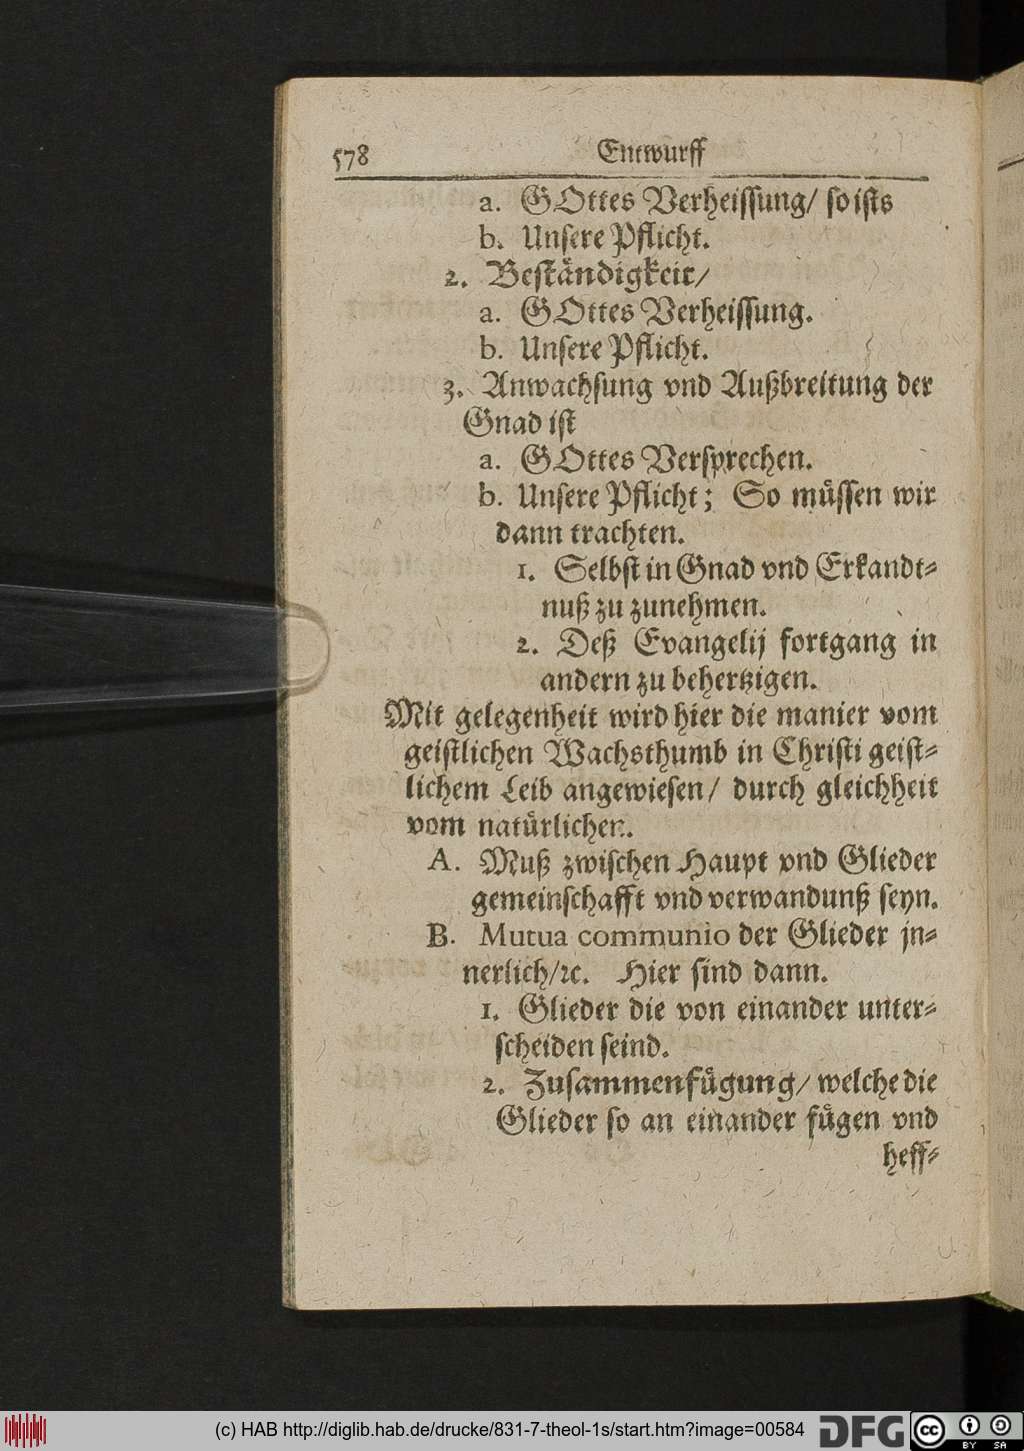 578 Entwurff
a. GOttes Verheissung/ so ists
b. Unsere Pflicht.
2. Beständigkeit/
a. GOttes Verheissung.
b. Unsere Pflicht.
3. Anwachsung vnd Außbreitung der
Gnad ist
a. GOttes Versprechen.
b. Unsere Pflicht; So müssen wir
dann trachten.
1. Selbst in Gnad vnd Erkandt-
nuß zu zunehmen.
2. Deß Evangelij fortgang in
andern zu behertzigen.
Mit gelegenheit wird hier die manier vom
geistlichen Wachsthumb in Christi geist-
lichem Leib angewiesen/ durch gleichheit
vom natürlichen.
A. Muß zwischen Haupt vnd Glieder
gemeinschafft vnd verwandunß seyn.
B. Mutua communio der Glieder jn-
nerlich/ꝛc. Hier sind dann.
1. Glieder die von einander unter-
scheiden seind.
2. Zusammenfügung/ welche die
Glieder so an einander fügen vnd
heff-
(c) HAB http://diglib.hab.de/drucke/831-7-theol-1s/start.htm?image=00584 DFG cc BY SA